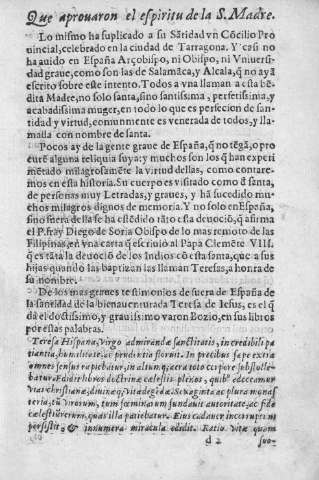 Que aprouaron el espiritu de la S. Madre.
Lo mismo ha suplicado a su Sãtidad vn Cõcilio Pro
uincial, celebrado en la ciudad de Tarragona. Y casi no
ha auido en España Arçobispo, ni Obispo, ni Vniuersi
dad graue, como son las de Salamãca, y Alcala, q̃ no aya
escrito sobre este intento. Todos a vna llaman a esta bẽ
dita Madre, no solo santa, sino santissima, perfetissima, y
acabadissima muger, en todo lo que es perfecion de san-
tidad y virtud, comunmente es venerada de todos, y lla-
malla con nombre de santa.
Pocos ay de la gente graue de España, q̃ no tẽgã, o pro
cure alguna reliquia suya: y muchos son los q̃ han experi
metado milagrosamẽte la virtud dellas, como contare-
mos en esta historia. Su cuerpo es visitado como d̃ santa,
de personas muy Letradas, y graues, y hã sucedido mu-
chos milagros dignos de memoria. Y no solo en España,
sino fuera della se ha estẽdido tãto esta deuociõ, q̃ afirma
el P. fray Diego de Soria Obispo de lo mas remoto de las
Filipinas, en vna carta q̃ escriuio al Papa Clemẽte VIII.
q̃ es tãta la deuociõ de los Indios cõ esta santa, que a sus
hijas quando las baptizan las llaman Teresas, a honra de
su nombre.
De los mas graues testimonios de fuera de España de
la santidad de la bienauenturada Teresa de Iesus, es el q̃
da el doctissimo, y grauissimo varon Bozio, en sus libros
por estas palabras.
Teresa Hispana, Virgo admirandæ sanctitatis, incredibili pa
tientia, humilitate, ac prudentia floruit. In precibus sæpe extra
omnes sensus rapiebatur, in altumq; aera toto corpore subsolle-
batur. Edidit libros doctrinæ cælestis plenos, quibꝰ edocemur
vias christianæ, diuinæq; vitæ degẽdæ. Sexaginta ac plura monas
teria, tũ virorum, tum fœminarum fundauit autoritate, ac fide
cælestiũ rerum, quas illa patiebatur. Eius cadauer incorruptum
persistit, & innumera miracula edidit. Ratio vitæ quam
d 2 suo-